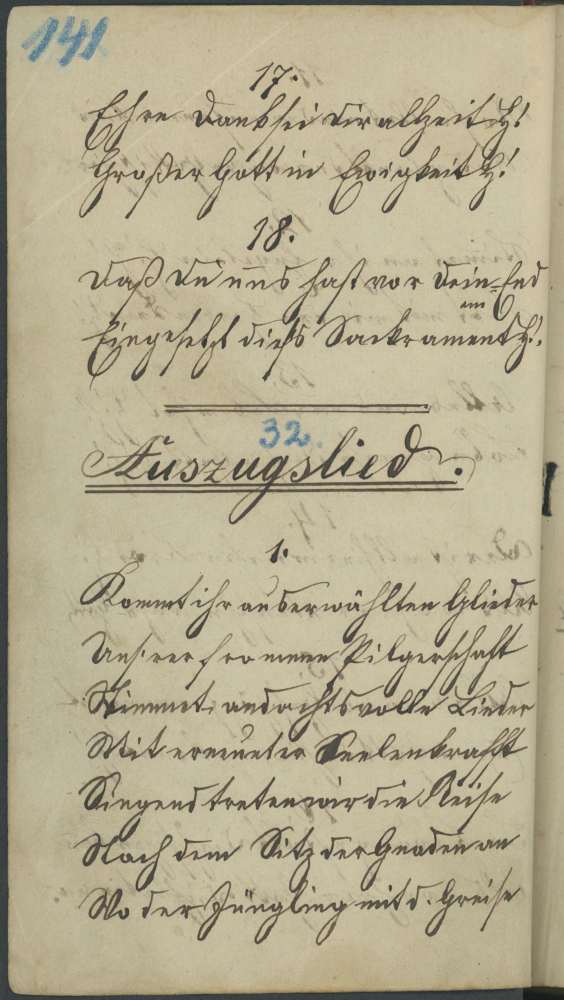 141
17.
Ehre Dank sei dir allzeit H!
Großer Gott in Ewigkeit H!
18.
Daß du uns hast vor dein-End
Eingesetzt dieß Sackrament H!.
32.
Auszugslied.
1.
Kommt ihr auserwählten Glieder
Uns'rer frommen Pilgerschaft
Stimmet andachtsvolle Lieder
Mit erneuter Seelenkrafft
Singend treten wir die Reise
Nach dem Sitz der Gnaden an
Wo der Jüngling mit d. Greise